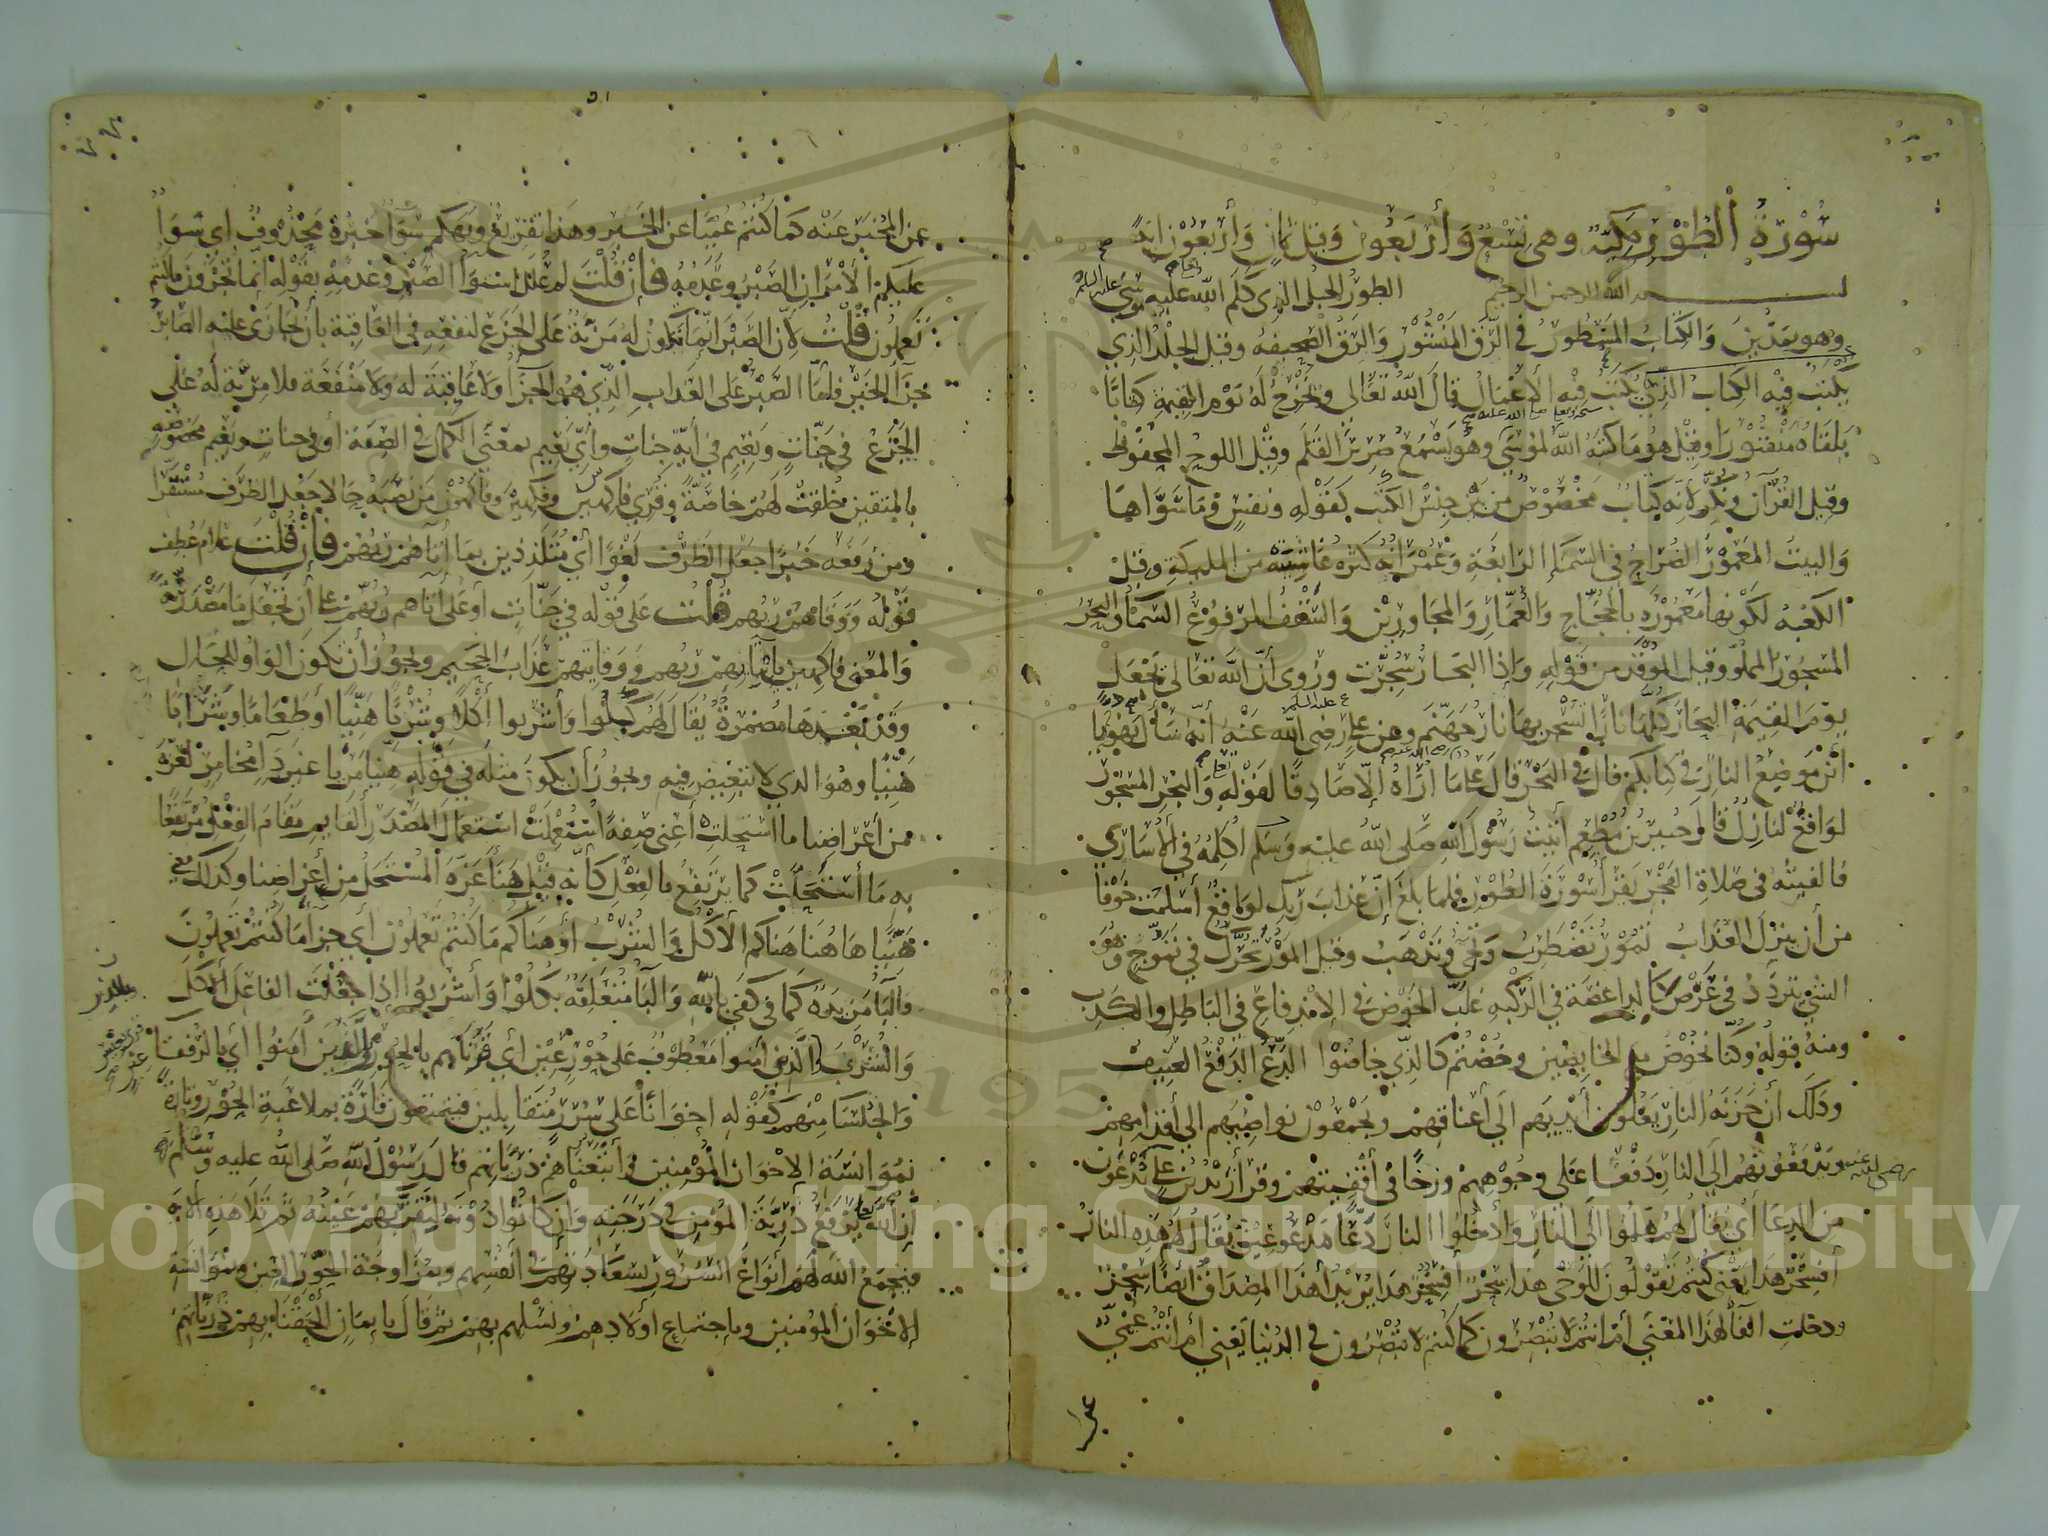 سُوْرَةُ الطُّوْرِ مَكِّيَّة وهي تِسْعٌ وَأَربَعُون وَقيل ثمانٍ وَأَربَعُوْن آيَةً
بسم الله الرحمن الرحيم الطورُ الجبل الذي كلم الله عليه موسى عليه السلم
وهو بمَدْيَنَ وَالكتابُ المسْطورُ في الرَّق المنْشُوْر وَالرَقُّ الصَّحيفه وقيل الجلْدُ الذي
يكْتبُ فيْه الكتاب الذِّي يُكتَبُ فيْه الأعْمَالُ قالَ اللهُ تعَالى ونُخْرِجُ لهُ يَوْم القِيمَةِ كتابًا
يَلقَاهُ مَنْشُوْرًا وقيْل هوُ مَا كتبَهُ اللهُ لموُسَى وهوُ يَسْمَعُ صَرِيْرَ القَلَم وقيْل اللوحُ المحْفُوظ
وقيل القُرْآنُ ونُكِّرَ لأنه كتابٌ مَخْصُوْصٌ من بَيْنِ جنْسْ الكتُب كقَوْلهِ ونفسٍ وَمَا سَوَّاهَا
وَالبيْتَ المَعْمُوْرِ الضُرَاحُ في السَمَاءِ الرَابعَةِ وَعُمْرَانُهُ كثرَه غَاشِيَتِهْ مِنَ الملايكَةِ وقيل
الكعْبه لكوْنها مَعْمُوْرَةً بالحُجَّاج وَالعُمَّارِ وَالمجَاورِيْن وَالسَّقْفُ المرْفوُعُ السَمَاءُ وَالبحْرُ
المسْجُورُ المملوُّ وقيل الموُقَدُ من قَوْلِهِ وَإذا البحَارُ سُجِّرَت ورُوى أنّ اللهَ تعَالى يَجْعَل
يوْمَ القيَمَة البحَارَ كُلهَا نارًا تُسْجَر بهَا نارُ جَهَنّمَ وعن عَليٍّ رضِى الله عَنْهُ أنّهُ سَأَلَ يَهُوْدِيّا
أيْنَ مَوضِعُ النارِ في كتابكمْ قالَ في البَحْرِ قالَ عَليٌّ مَا أُرَاهُ إلّا صَادِقًا لقوْلِهِ وَالبَحْرِ المَسْجُوْر
لوَاقعٌ لنازلٌ قالَ جُبَيْرُ بْنُ مُطْعِم أتيْتُ رَسُوْلَ اللهِ صَلى اللهُ عليْهِ وَسَلم أكلِّمُهُ في الأُسَارَى
فألفيْتُهُ في صَلاةِ الفَجْرِ يَقْرأُ سُوْرَةَ الطوْرِ فلما بلغ إنّ عَذابَ رَبّكَ لوَاقعٌ أسلمتُ خَوْفًا
من أن ينزلَ العَذابُ تمُوْرُ تَضْطَربُ وَتجئُ وتذْهَبُ وقيل الموْرُ تحرُّكٌ في تمَوّجٍ وَهُوَ
الشئُ يتردّدُ في عَرْضٍ كالداغصَة في الرُّكْبهِ غَلبَ الخَوْضُ في الاندِفاعِ في البَاطل وَالكَذِب
ومنهُ قوْلُهُ وَكنّا نخُوْضُ مع الخَايضِيْن وخُضْتُم كالذّي خاضُوْا الدّعُّ الدّفْعُ العنِيْف
وذلكَ أن خَزَنَة النارِ يَغُلّونَ أيْدِيَهم إلَى أعْنَاقِهِمْ ويَجْمَعُوْنَ نوَاصِيَهم إلى أقْدامِهِمْ
ويَدْفَعُوْنهُم إلَى النارِ دَفْعًا عَلى وجُوْهِهِمْ وزخًا في أقْفِيَتِهِمْ وقرَأ زَيْدُ بْنُ عَلي يُدْعَوْنَ رضي الله عنه
مِنَ الدعَاءِ أيْ يُقَالُ لهُمْ هَلُمّوا إلَى النارِ وَادْخُلوُا النارَ دَعًّا مَدْعُوعِيْنَ يُقَالُ لَهُمْ هَذِهِ النارُ
أفسِحْرٌ هَذا يَعْني كُنتُمْ تَقوْلوُنَ للوَحْى هَذا سِحْرٌ أفَسِحْرٌ هَذا يُرِيْدُ أهَذا المِصْدَاقُ أيْضًا سِحْرٌ
ودخلتِ الفاُ لهَذا المعْنَى أمْ أنتُمْ لا تُبْصِرُون كما كُنتمْ لا تُبْصِرُون في الدُّنيا يَعْني أم أنتُمْ عُمْىٌ
عن
عن المُخبَر عَنْه كمَا كُنتُمْ عُمْيًا عن الخَبَر وَهَذا تقْريعٌ وَتهَكّم سَوَاءٌ خَبرُهُ مَحْذُوْفٌ أي سَوَاءٌ
عَليْكمْ الأَمْرَانِ الصَبْرُ وَعَدَمُهُ فإنْ قُلْتَ لم عُلّلَ استوَاءُ الصَبْرِ وَعَدمُهُ بقَوْلهِ إنمَا تُجْزَوْنَ مَا كنتم
تعْمَلونَ قلْتُ لأَنّ الصَبْرَ إنّمَا تَكوُنُ لهُ مَزيّةٌ عَلى الجَزَع لنَفْعِهِ في العَاقبَة بأن يُجَازَى عَليْه الصَابرُ
جَزَآءَ الخَيْرِ فأمّا الصَبْرُ عَلى العَذابِ الذِّي هُوَ الجَزَآءُ وَلا عَاقِبَةَ لهُ وَلا مَنْفَعَة فلا مَزيّةَ لهُ عَلى
الجَزَع في جَنّاتٍ وَنَعِيمٍ في أيّةِ جَنّاتٍ وَأيّ نَعِيمٍ بمعْنَى الكمال في الصِفَة أو في جنات وَنعيمٍ مخصُوصَةٍ
بالمتقين خُلقَتْ لَهُمْ خَاصّةً وَقُرئ فاكهين وفَكهِيْنَ وَفاكهُوْنَ مَن نصَبَهُ حَالا جَعَل الظَرْفَ مُسْتَقَرًّا
ومن رَفَعَه خَبَرًا جَعَل الظَرْفَ لغْوًا أيْ مُتَلَذّذِين بمَا آتاهُمْ ربُّهُمْ فَإن قُلْتَ عَلامَ عُطف
قَوْلُهُ وَوَقاهُمْ رَبُّهُمْ قُلْتُ عَلى قوْله في جَنّاتٍ أوْ عَلى آتاهُمْ رَبُّهُمْ على أن تجْعَلَ مَا مَصْدَريّةً
وَالمعْنى فاكِهِيْن بإيتَائِهِمْ رَبُّهُم وَوِقايَتِهِمْ عَذَابَ الجَحيم وَيجُوْزُ أنْ تكوْنَ الوَاوُ للحَال
وَقَدْ بَعْدَهَا مُضمَرةٌ يُقَالُ لهُمْ كُلوُا وَأشْرَبوا أكْلًا وشُرْبًا هَنِيًّا أوْ طَعَامًا وَشَرَابًا
هَنِيًّا وَهُوَ الذي لا تَنْغِيْصَ فيهِ وَيجُوْزُ أن يكوْنَ مثلَهُ في قَوْلِهِ هَنِيًّا مَرِيًّا غَيْرَ دَآءٍ مُخَامِرٍ لعَزّةَ
من أعْرَاضِنا ما اسْتَحلتْ أعني صِفةً اسْتُعْمِلَتْ استعْمَالَ المَصْدَر القَايم مَقَام الفِعْل مُرْتَفِعًا
بهِ مَا أسْتَحَلّتْ كمَا يَرْتَفِعُ بالفِعْل كأنهُ قيْل هَنَأَ عَزّةَ المُسْتَحَلُّ مِن أعْرَاضِنا وَكذلكَ معنى
هَنِيًّا هَا هُنَا هَنَأكم الأكْلُ وَالشُرْبُ أوْ هَنَأكُمْ مَا كُنتُمْ تَعْمَلوُنَ أي جَزَآءُ مَا كُنتُمْ تَعْمَلوُنَ
وَالبَآءُ مَزيْدَة كَمَا في كفَى باللّه وَالبَآءُ مُتعَلقَةٌ بكُلوُا وَأشْرَبوُا إذا جَعَلْتَ الفَاعِلَ الأكْلَ
وَالشُرْبَ وَالّذِينَ آمَنوا مَعْطُوْفٌ عَلى حُوْرٍ عِيْنٍ أي قَرَنّاهُمْ بالحُوْرِ وَبالّذينَ آمَنُوا أي بالرُفقاءِ
وَالجُلسَاءِ مِنْهُمْ كقوْلهِ إخْوَانًا عَلى سُرُرٍ مُتقابلين فيتمتّعوُنَ تارَةً بملاعَبَة الحُوْرِ وَتارَةً
بمُوَانَسَةِ الإخْوَان المُؤمِنِين وَأتْبَعْنَاهُمْ ذُرّيّاتِهِم قالَ رَسُوْلُ اللّه صَلى اللهُ عليه وسَلم
إنّ اللّهَ يَرْفَعُ ذُرِّيّةَ المُؤمِنِ في دَرَجَتِهِ وَإنْ كَانوُا دُوْنهُ لِتَقَرّ بهِمْ عَيْنُهُ ثمّ تَلا هَذِهِ الآيَة
فيَجْمَعُ اللّهُ لَهُم أنْوَاعَ السُرُوْر بسَعَادَتِهِم في أنفُسِهِم وَبمُزَاوَجَة الحُوْرِ العِيْن وَبمُوَانَسَة
الإخْوَان المُؤْمِنِيْن وَباجْتِمَاعِ أوْلادِهِمْ وَنَسْلهِم بهِمْ ثمّ قالَ بإيمَانٍ ألحَقْنَا بهِمْ ذُرّيّاتِهِمْ